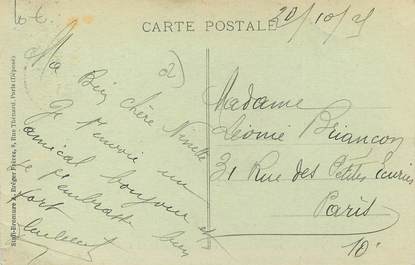 CARTE POSTALE
20/10/25
Ma Bien chère Ninette
Je t'envoie un
amical bonjour et
je t'embrasse bien
fort
Madame
Léonie Briançon
31 Rue des Petites Ecuries
Paris
10e
Breger Frères, 9, Rue Thénard, Paris (Déposé)